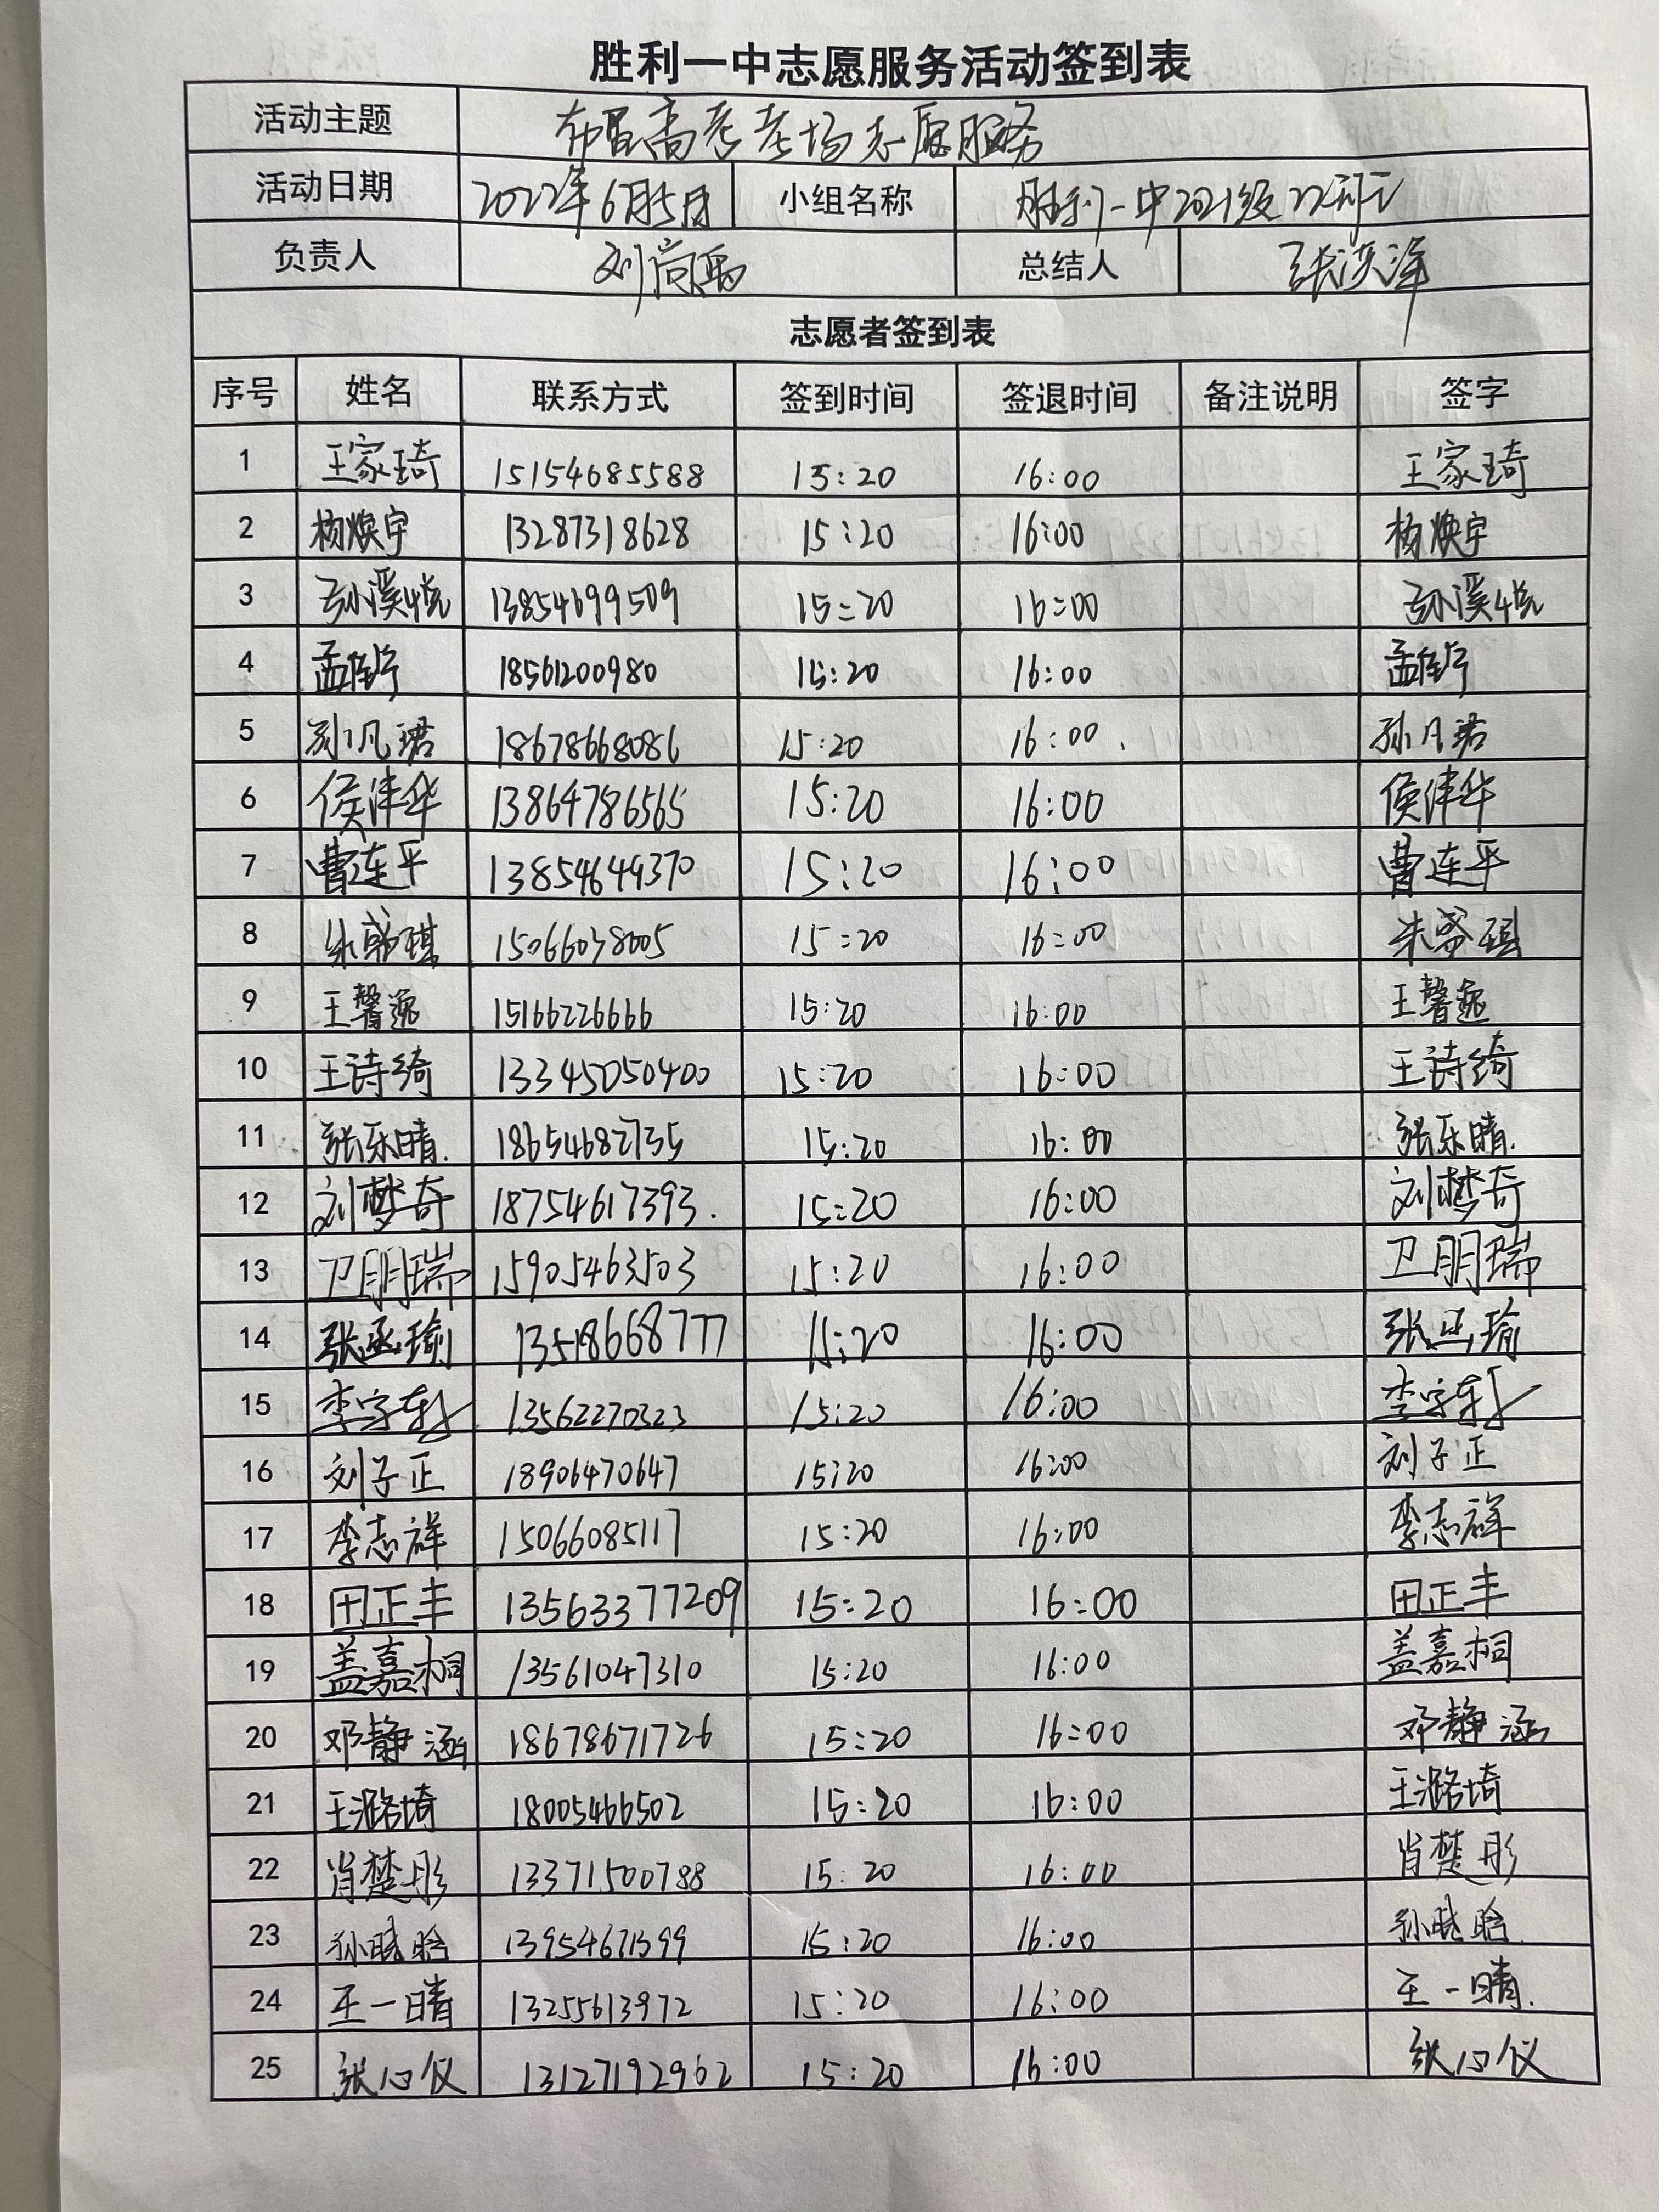 胜利一中志愿服务活动签到表
活动主题 布置高考考场志愿服务
活动日期 2022年6月5日 小组名称 胜利一中2021级22
负责人 刘尚禹 总结人 张洪泽
志愿者签到表
序号 姓名 联系方式 签到时间 签退时间 备注说明 签字
1 王家琦 15154685588 15:20 16:00 王家琦
2 杨焕宇 13287318628 15:20 16:00 杨焕宇
3 孙溪悦 13854699509 15:20 16:00 孙溪悦
4 孟 18561200980 15:20 16:00 孟
5 孙凡珺 18678668086 15:20 16:00 孙凡珺
6 侯津华 13864786565 15:20 16:00 侯津华
7 曹连平 13854649370 15:20 16:00 曹连平
8 朱 琪 15066038005 15:20 16:00 朱 琪
9 王馨逸 15166226666 15:20 16:00 王馨逸
10 王诗绮 13345050400 15:20 16:00 王诗绮
11 张乐晴. 18654682735 15:20 16:00 张乐晴.
12 刘梦奇 18754617393. 15:20 16:00 刘梦奇
13 卫明瑞 15905463503 15:20 16:00 卫明瑞
14 张丞瑜 13518668777 15:20 16:00 张丞瑜
15 李宇轩 13562270323 15:20 16:00 李宇轩
16 刘子正 18906470647 15:20 16:00 刘子正
17 李志祥 15066085117 15:20 16:00 李志祥
18 田正丰 13563377209 15:20 16:00 田正丰
19 盖嘉桐 13561047310 15:20 16:00 盖嘉桐
20 邓静涵 18678671726 15:20 16:00 邓静涵
21 王潞埼 18005466502 15:20 16:00 王潞埼
22 肖楚彤 13371500788 15:20 16:00 肖楚彤
23 孙晓晗 13954671399 15:20 16:00 孙晓晗
24 王一晴 13255613972 15:20 16:00 王一晴.
25 张心仪 13127192962 15:20 16:00 张心仪